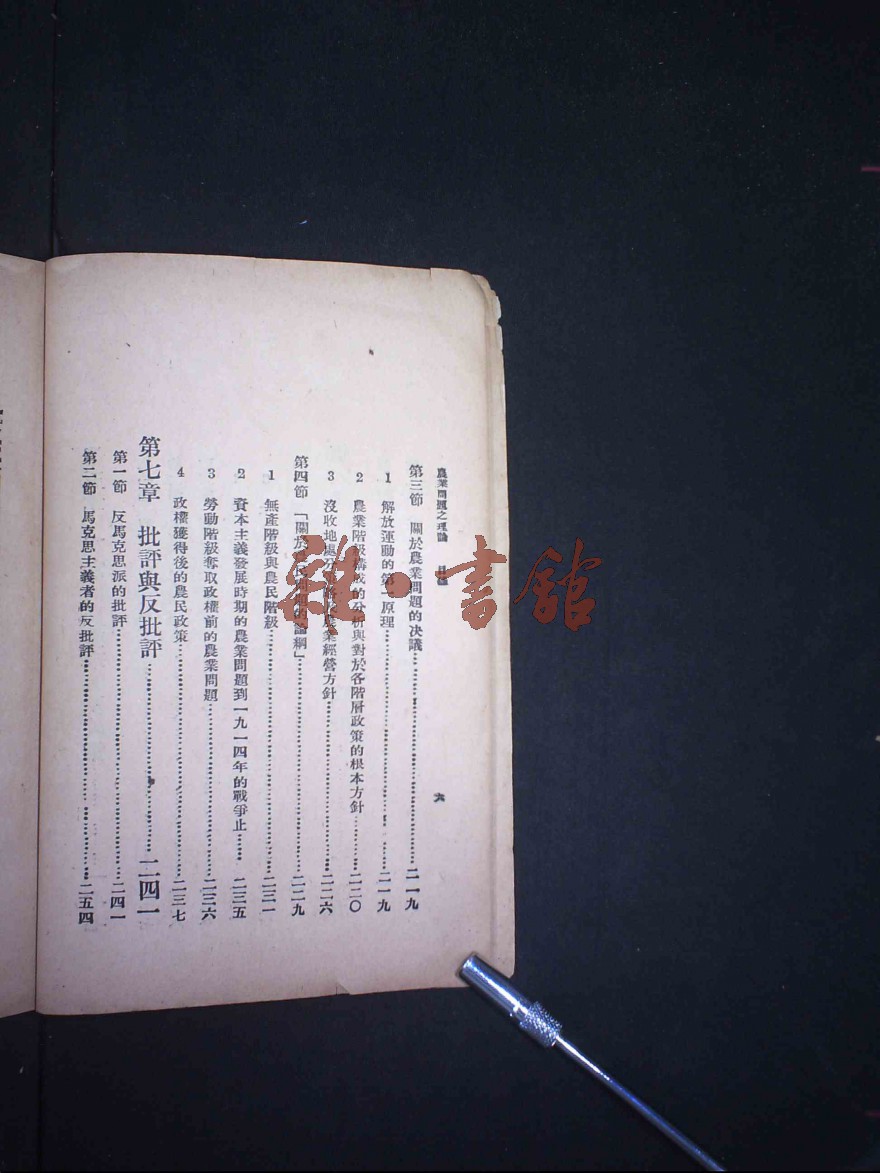 農業問題之理論 目錄 六
第三節 關於農業問題的決議……二一九
1 解放運動的第一原理……二一九
2 農業階級構成的分析與對於各階層政策的根本方針……二二〇
3 沒收地處分 農業經營方針……二二六
第四節 「關於農民問題的論綱」……二二九
1 無產階級與農民階級……二三一
2 資本主義發展時期的農業問題到一九一四年的戰爭止……二三五
3 勞動階級奪取政權前的農業問題……二三六
4 政權獲得後的農民政策……二三七
第七章 批評與反批評……二四一
第一節 反馬克思派的批評……二四一
第二節 馬克思主義者的反批評……二五四
雜·書館